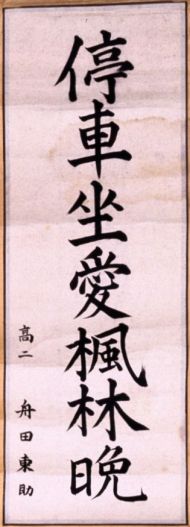 停車坐愛楓林晩
高二 舟田東助